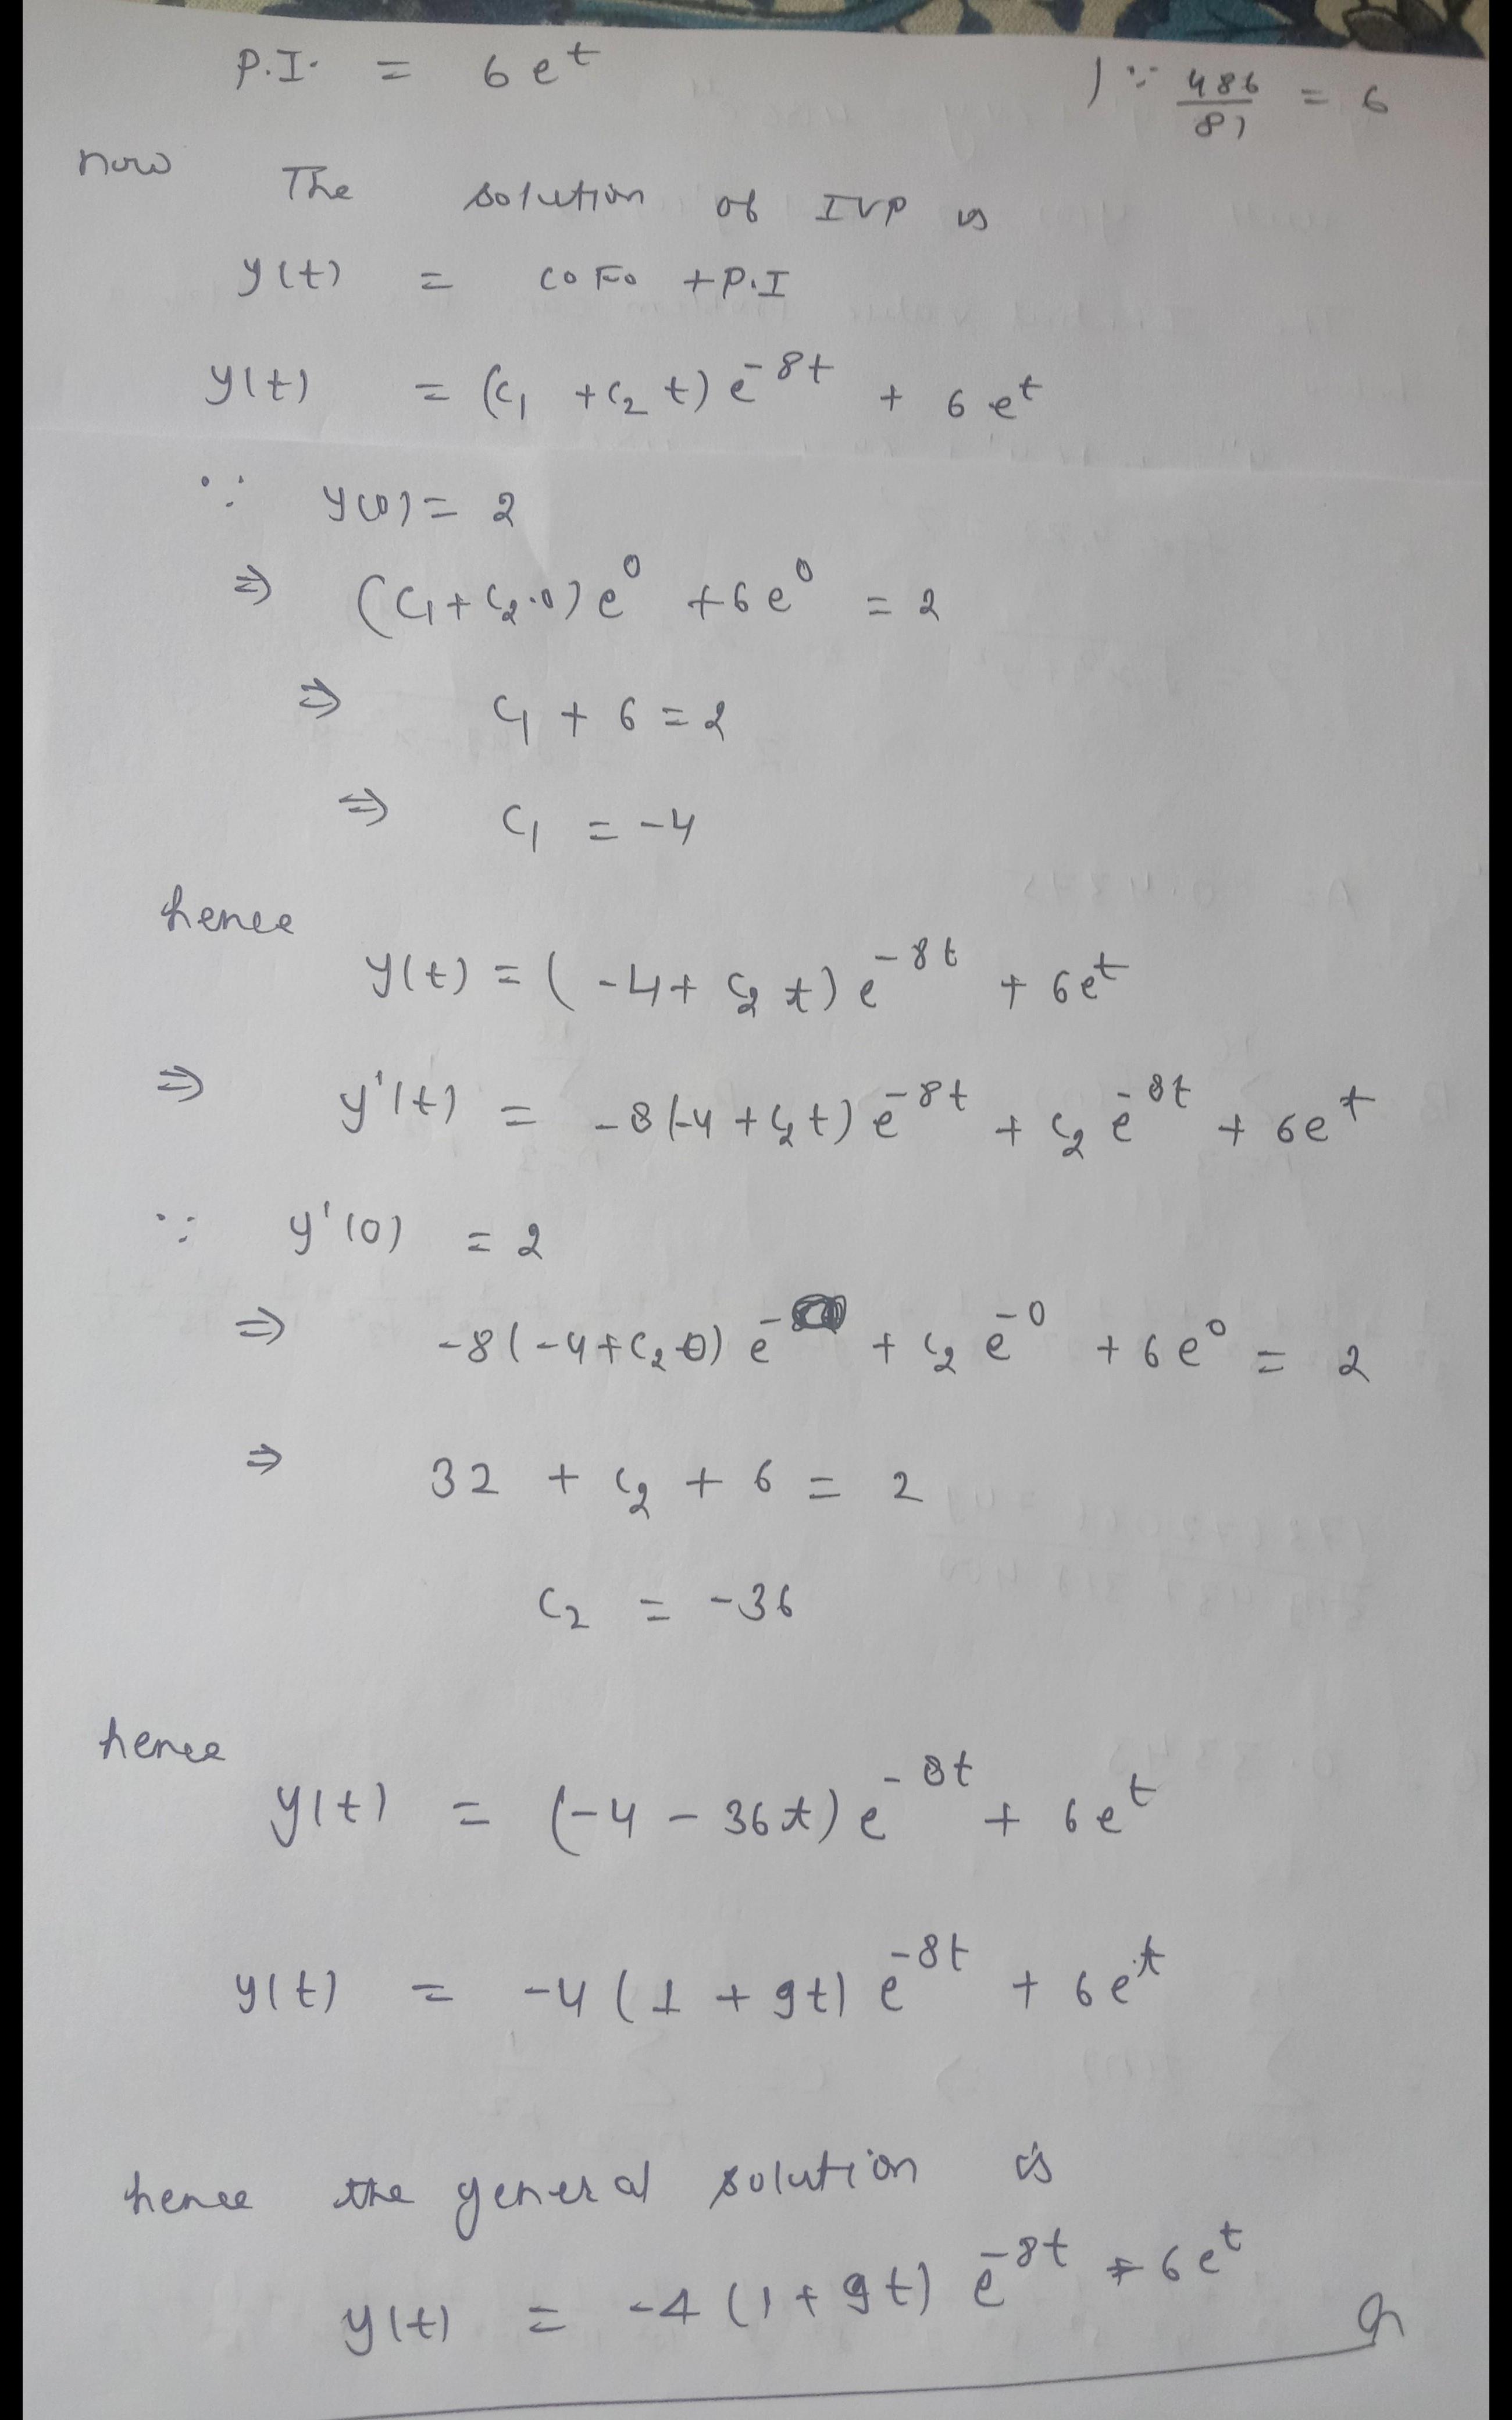 P.I. = 6e^t ) ∵ 486/81 = 6
now The solution of IVP is
y(t) = C.F. + P.I
y(t) = (c₁ + c₂ t) e^-8t + 6 e^t
∵ y(0) = 2
⇒ (c₁ + c₂.0) e^0 + 6 e^0 = 2
⇒ c₁ + 6 = 2
⇒ c₁ = -4
hence
y(t) = ( -4 + c₂ t) e^-8t + 6e^t
⇒ y'(t) = -8(-4 + c₂t) e^-8t + c₂ e^-8t + 6e^t
∵ y'(0) = 2
⇒ -8(-4 + c₂ 0) e^- + c₂ e^-0 + 6e^0 = 2
⇒ 32 + c₂ + 6 = 2
c₂ = -36
hence
y(t) = (-4 - 36t) e^-8t + 6e^t
y(t) = -4 (1 + 9t) e^-8t + 6e^t
hence the general solution is
y(t) = -4 (1 + 9t) e^-8t + 6e^t